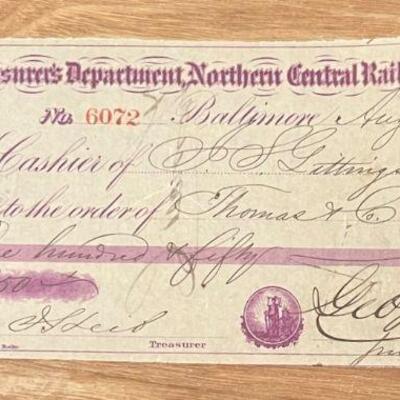 surer's Department, Northern Central Rail
No. 6072 Baltimore Aug
Cashier of J. S. Gittings
to the order of Thomas & Co
hundred & fifty
50
Treasurer
Geo